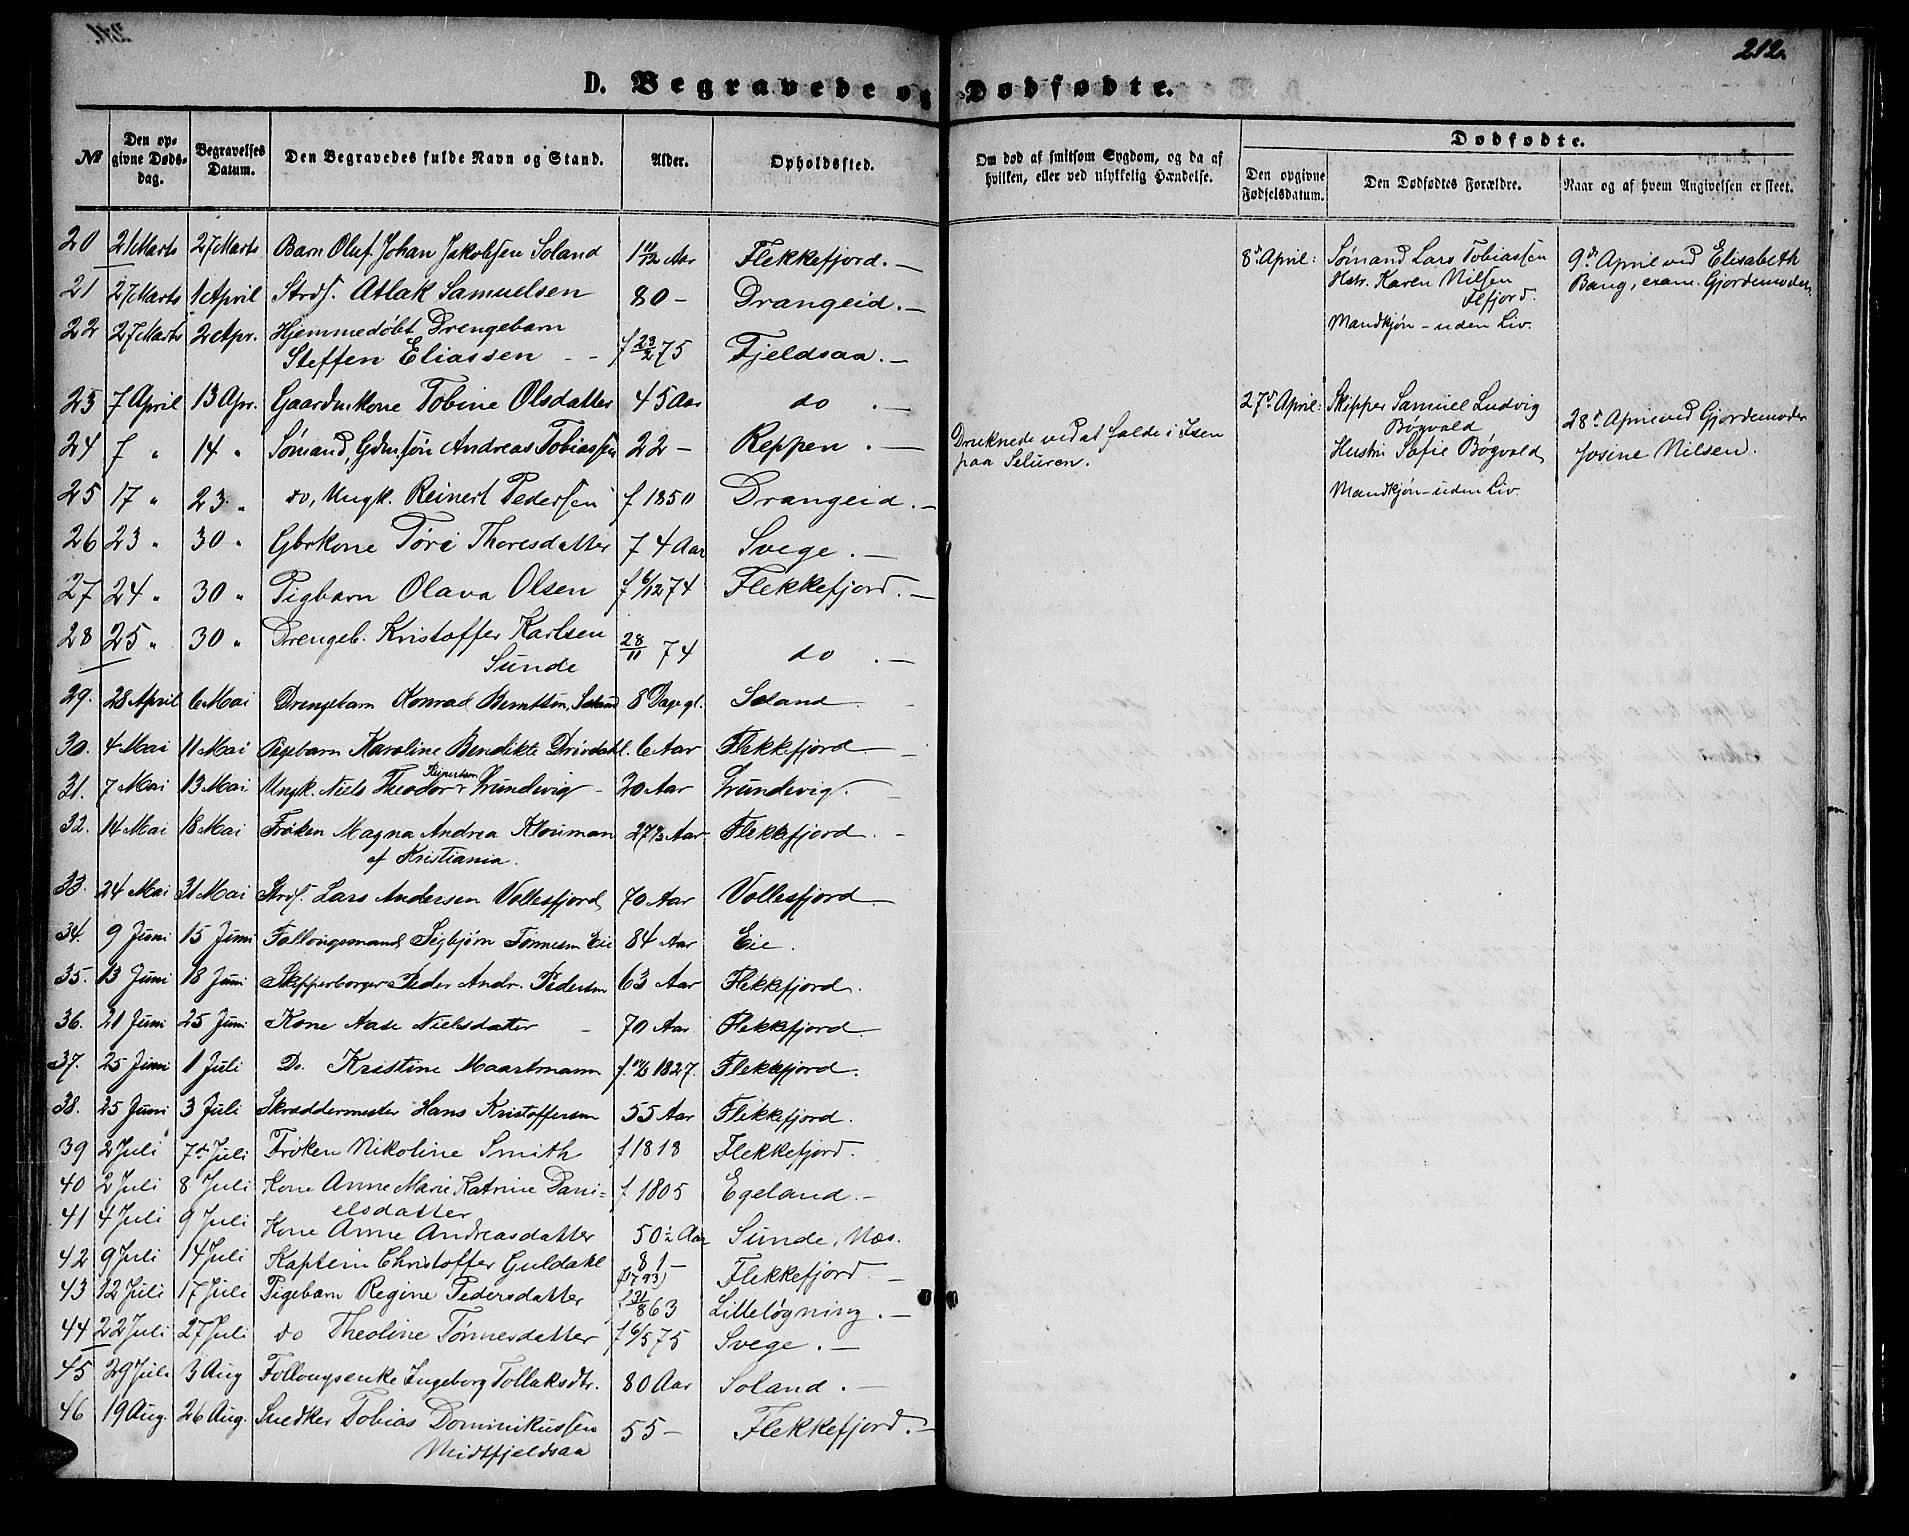 212.
D. Begravede og Dødfødte.
№ | Den opgivne Dødsdag. | Begravelses Datum. | Den Begravedes fulde Navn og Stand. | Alder. | Opholdssted. | Om død af smitsom Sygdom, og da af hvilken, eller ved ulykkelig Hændelse. | Dødfødte. | Den opgivne Fødselsdatum. | Den Dødfødtes Forældre. | Naar og af hvem Angivelsen er skeet.
20 21 Marts 27 Marts Barn Oluf Johan Jakobsen Soland 1 11/12 Aar Flekkefjord. —
21 27 Marts 1 April Strdf. Atlak Samuelsen 80 — Drangeid. —
22 27 Marts 2 Apr. Hjemmedøbt Drengebarn
Steffen Eliassen - - f 23/2 75 Fjeldsaa. —
23 7 April 13 Apr. Gaardm.kone Tobine Olsdatter 45 Aar do . —
24 7 " 14 " Sømand, Gdm.søn Andreas Tobiassen 22 — Reppen . — Druknede ved at falde i Isen
paa Seluren.
25 17 " 23 " do, Ungk. Reinert Pedersen f 1850 Drangeid. —
26 23 " 30 " Gbrkone Tøri Thoresdatter 74 Aar Svege . —
27 24 " 30 " Pigbarn Olava Olsen f 6/12 74 Flekkefjord. —
28 25 " 30 " Drengeb. Kristoffer Karlsen
Sunde 28/11 74 do . —
29. 28 April 6 Mai Drengebarn Konrad Berntsen, Soland 8 Dage gl. Soland
30. 4 Mai 11 Mai Pigebarn Karoline Bendikte Drivdahl. 6 Aar Flekkefjord —
31. 7 Mai 13 Mai Ungk. Niels Theodor Reinertsen Grundevig - 20 Aar Grundevig. —
32. 14 Mai 18 Mai Frøken Magna Andrea Klouman
af Kristiania. 27 Aar Flekkefjord. —
33. 24 Mai 31 Mai Strdf. Lars Andersen Vollesfjord 70 Aar Vollesfjord —
34. 9 Juni 15 Juni Follougsmand Sigbjørn Tønnesen Eie 84 Aar Eie.
35. 13 Juni 18 Juni Skipperborger Peder Andr. Pedersen 63 Aar Flekkefjord.
36. 21 Juni 25 Juni Kone Aase Nielsdatter - 70 Aar Flekkefjord
37. 25 Juni 1 Juli Do. Kristine Maastmann f. 1827. Flekkefjord.
38. 25 Juni 3 Juli Skræddermester Hans Kristoffersen 55 Aar Flekkefjord.
39 2 Juli 7de Juli Frøken Nikoline Smith f 1818 Flekkefjord.
40 2 Juli 8 Juli Kone Anne Marie Katrine Dani=
elsdatter f 1805 Egeland. —
41 4 Juli 9 Juli Kone Anne Andreasdatter 50 ½ Aar Sunde, Næs.
42 9 Juli 14 Juli Kaptein Christoffer Guldahl 81 — (f 1793) Flekkefjord. —
43 12 Juli 17 Juli Pigebarn Regine Pedersdatter f 31/8 63 Lilleløgning. —
44 22 Juli 27 Juli do Theoline Tønnesdatter f 6/5 75 Svege . —
45 29 Juli 3 Aug Follougsenke Ingeborg Tollaksdtr. 80 Aar Soland . —
46 19 Aug. 26 Aug. Snedker Tobias Dominikussen
Midtfjeldsaa 55 — Flekkefjord. —
8de April: Sømand Lars Tobiassen
Hstr. Karen Nilsen
Flfjord.
Mandkjøn — uden Liv.
9de April ved Elisabeth
Bang, exam. Gjordemoder.
27de April: Skipper Samuel Ludvig
Bøgvald
Hustru Sofie Bøgvald
Mandkjøn — uden Liv.
28de April ved Gjordemoder
Josine Nilsen.